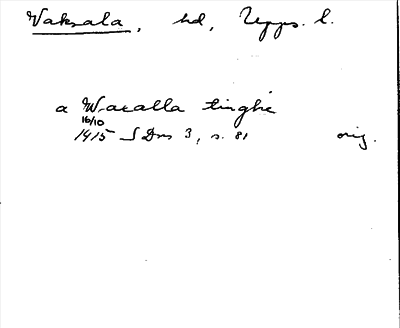 Vaksala, hd, Upps. l.
a Waxalla tinghe
16/10
1415 SDns 3, s. 81 orig.